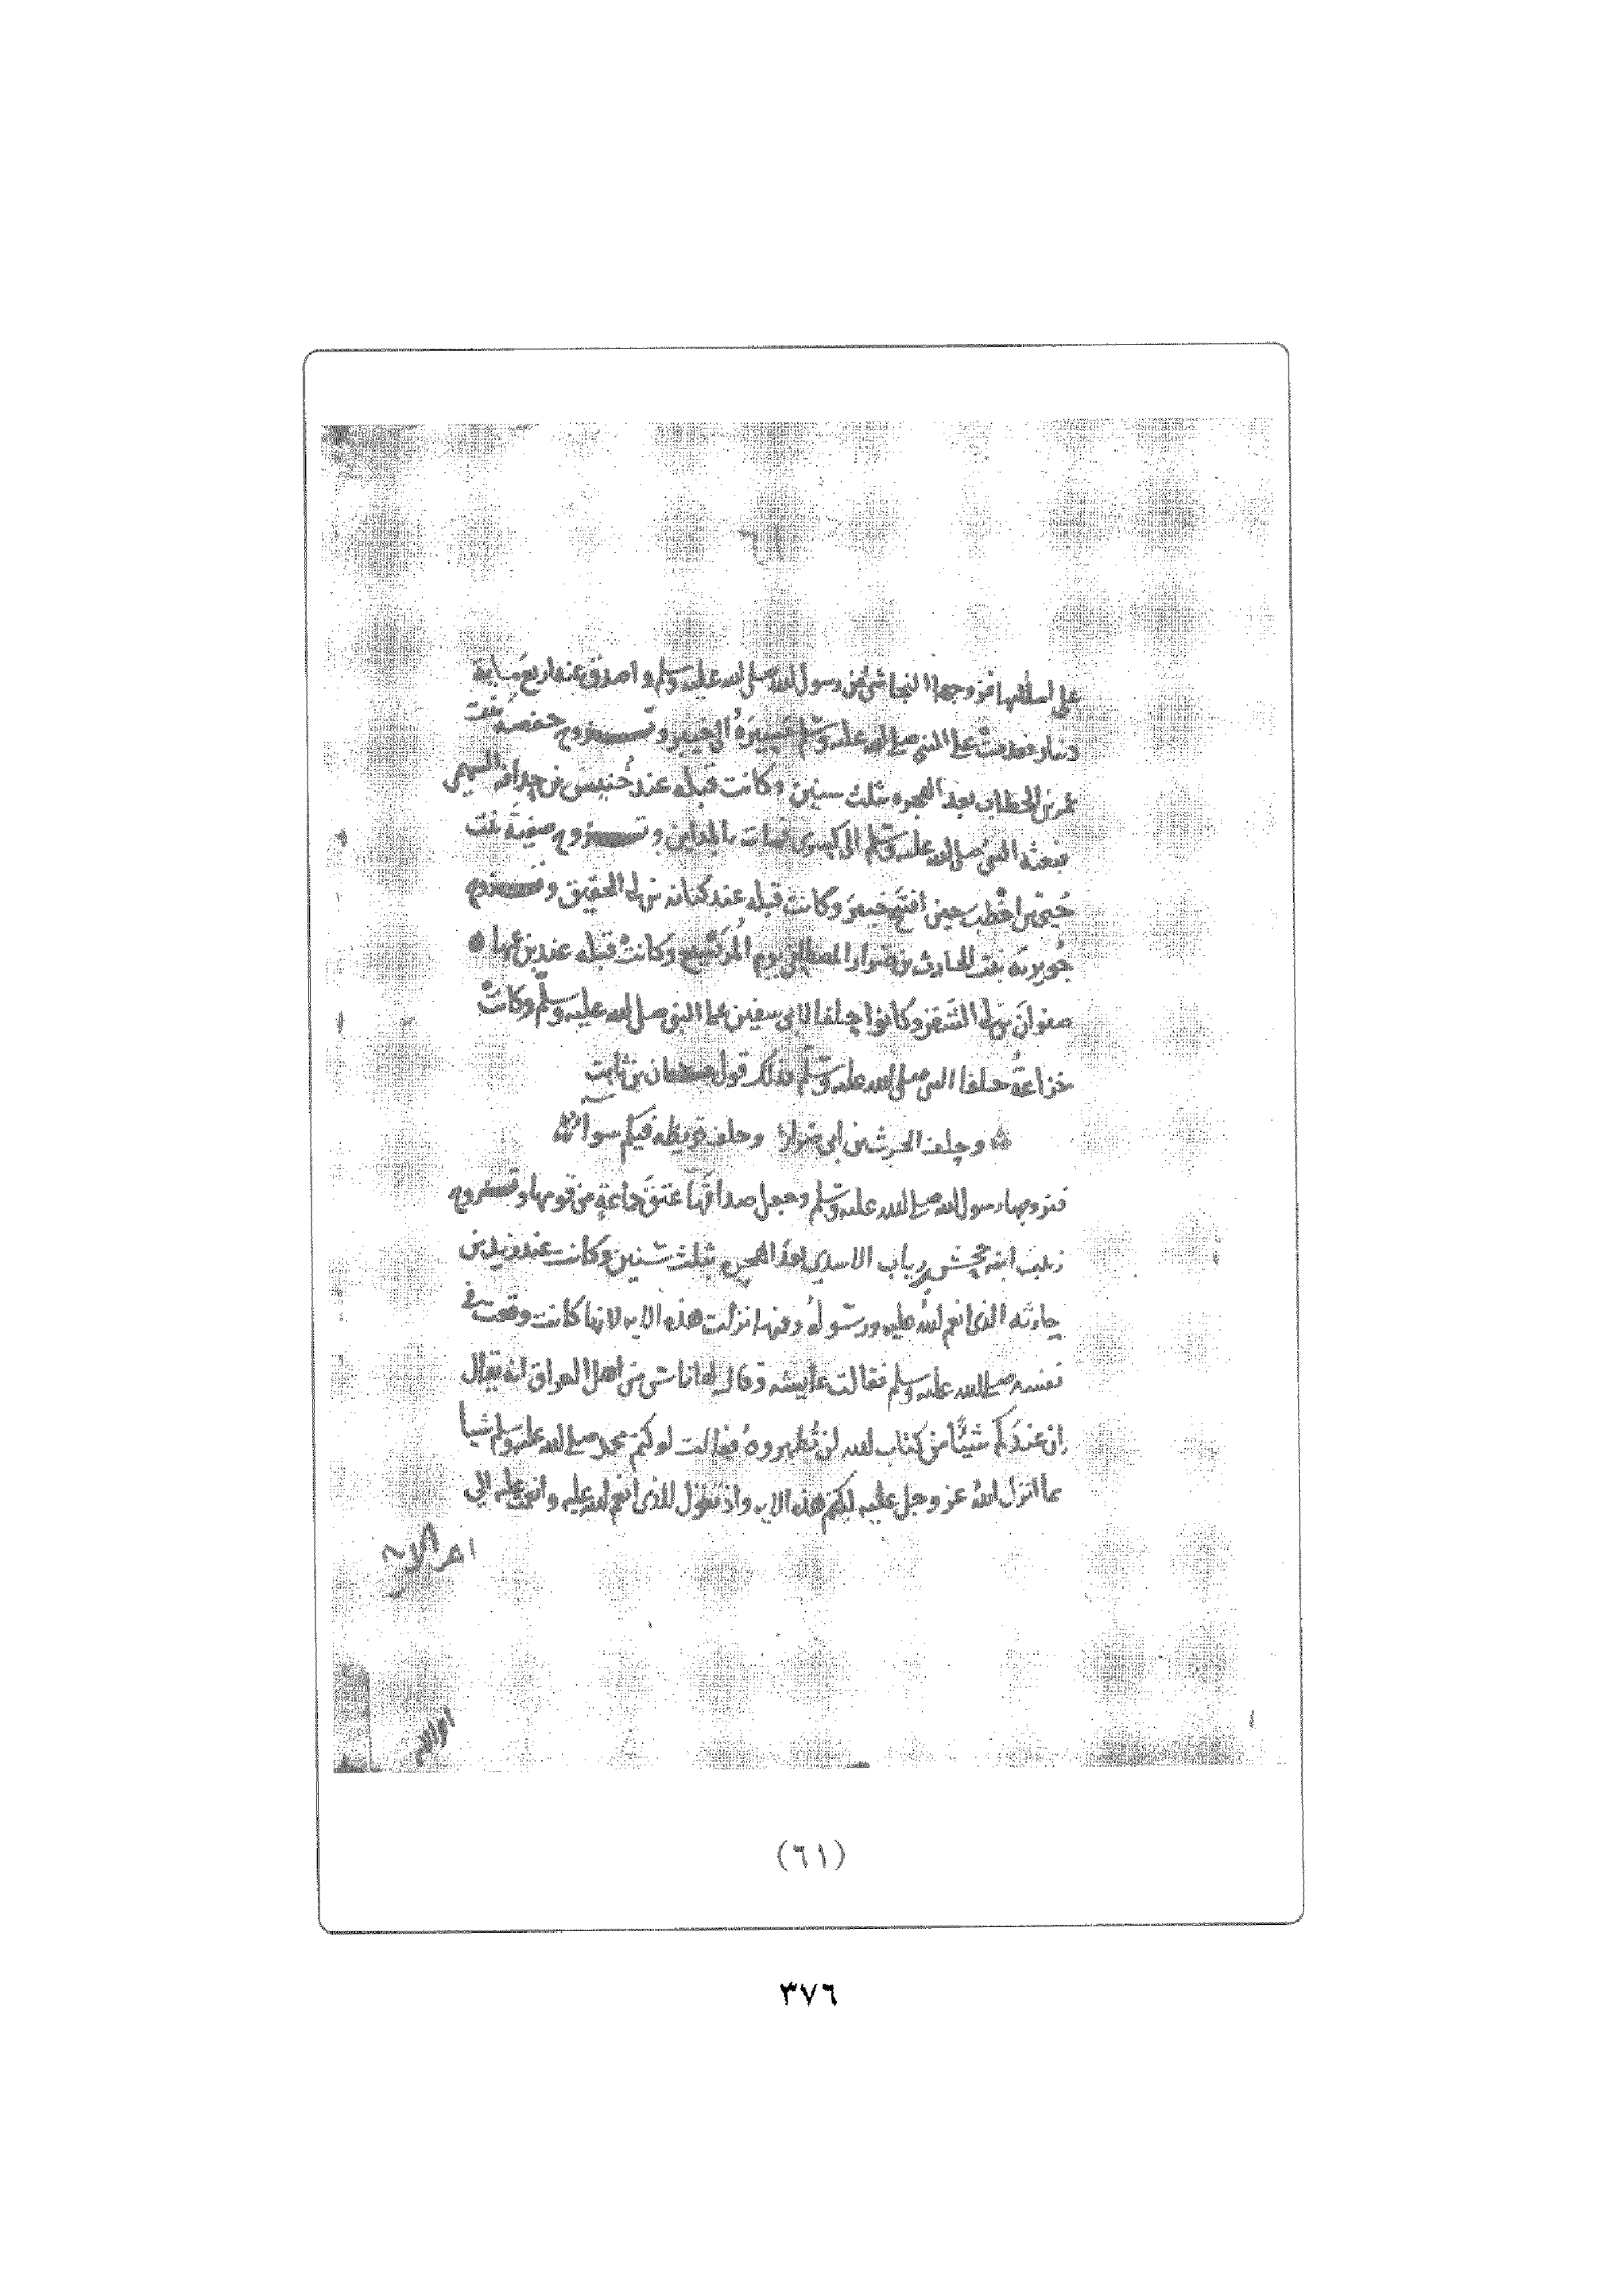 على اسلامها فزوجها النجاشي من رسول الله صلى الله عليه وسلم واصدق عنه اربع ماية
دينار فقدمت على النبي صلى الله عليه وسلم مسيره الى خيبر وتزوج حفصة بنت
عمر بن الخطاب بعد الهجره بثلث سنين وكانت قبله عند خنيس بن حذافه السهمي
فبعثه النبي صلى الله عليه وسلم الى كسرى فمات بالمداين وتزوج صفية بنت
حيي بن اخطب حين افتتح خيبر وكانت قبله عند كنانه بن ابي الحقيق وتزوج
جويريه بنت الحارث بن ضرار المصطلقي يوم المريسيع وكانت قبله عند بن عمها
صفوان بن ابي الشفر وكانوا حلفا لابي سفين على النبي صلى الله عليه وسلم وكانت
خزاعة حلفا النبي صلى الله عليه وسلم فذلك قول حسان بن ثابت
وحلف الحرث بن ابي ضرار وحلف قريظه فيكم سوا
فتزوجها رسول الله صلى الله عليه وسلم وجعل صداقها عتق جماعة من قومها وتزوج
زينب ابنه جحش بن رياب الاسدي بعد الهجره بثلث سنين وكانت عند زيد بن
حارثه الذي انعم الله عليه ورسوله وفيها نزلت هذه الايه لانها كانت وقعت في
نفسه صلى الله عليه وسلم فقالت عايشه وقال لها ناس من اهل العراق انه يقال
ان عندكم شيئا من كتاب الله لن تظهروه فقالت لو كتم محمد صلى الله عليه وسلم شيا
مما انزل الله عز وجل عليه لكتم هذه الايه واذ تقول للذي انعم الله عليه وانعمت عليه الى
(٦١)
٣٧٦